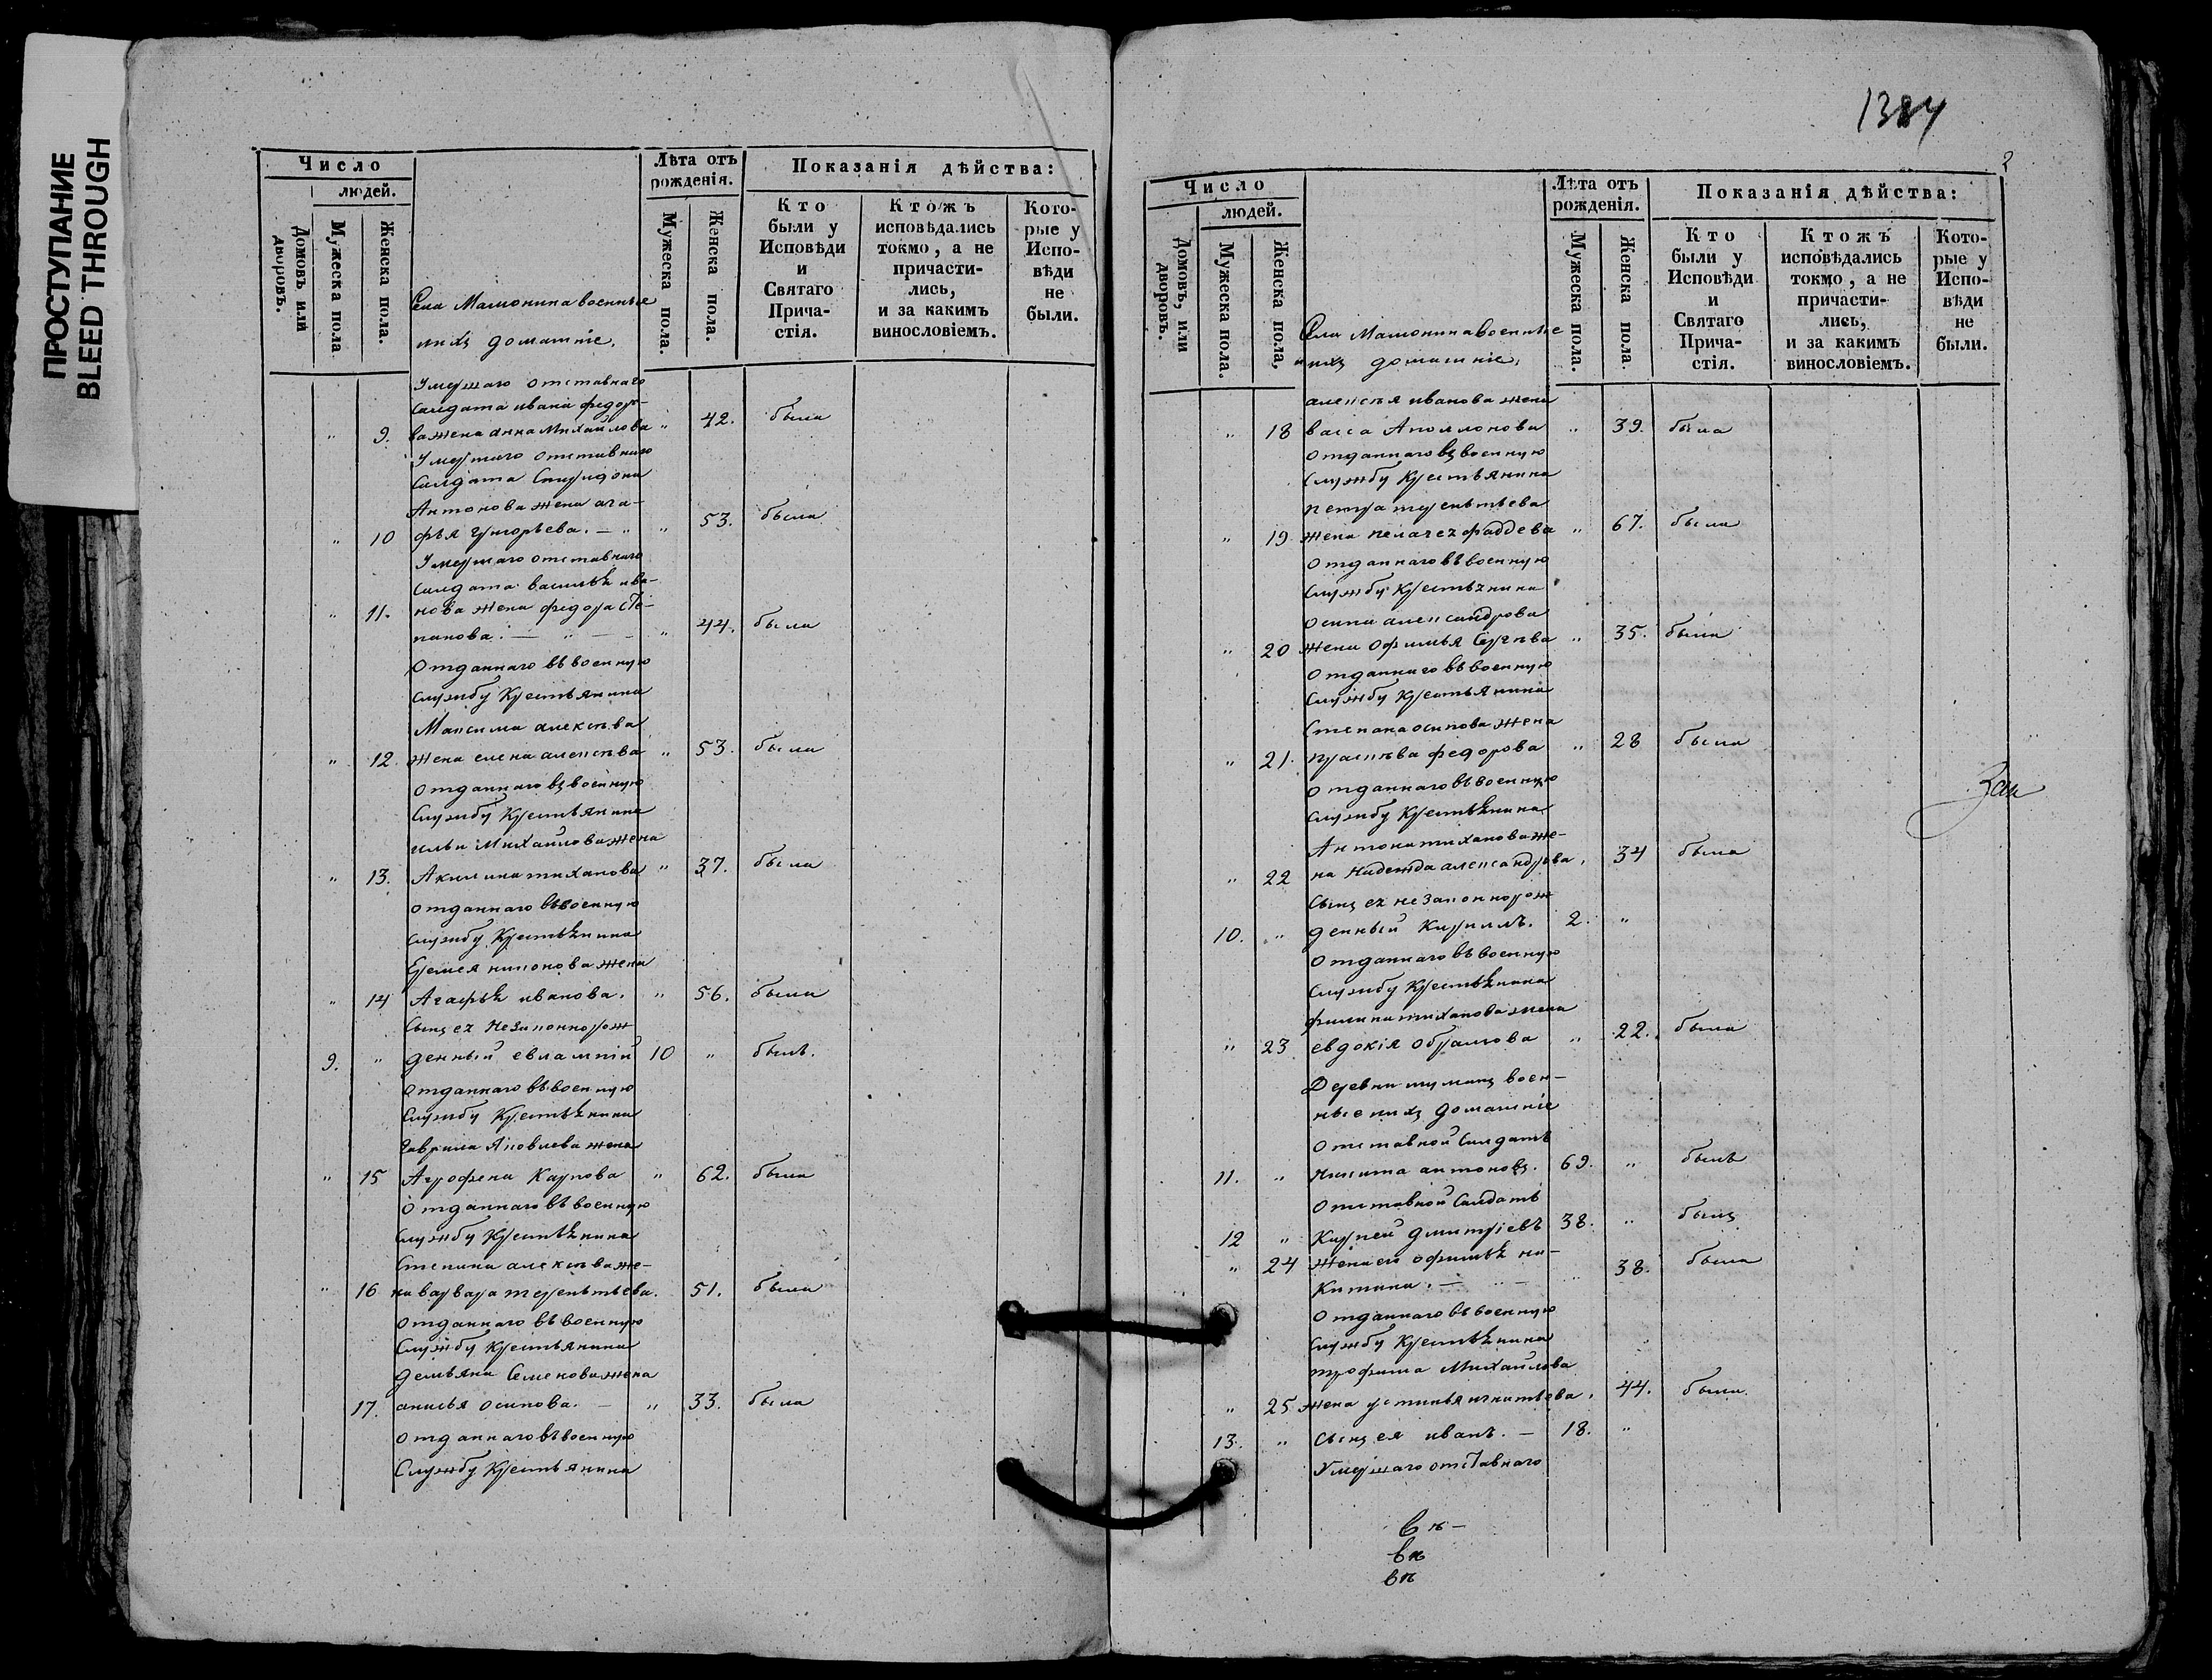 ПРОСТУПАНИЕ
BLEED THROUGH
Число
людей.
Домовъ или дворовъ.
Мужеска пола
Женска пола.
Села Мамонина военные
и ихъ домашніе.
Лѣта отъ рожденія.
Мужеска пола.
Женска пола.
Показанія дѣйства:
Кто были у Исповѣди и Святаго Прича-стія.
Ктожъ исповѣдались токмо, а не причасти-лись, и за какимъ винословіемъ.
Кото-рые у Испо-вѣди не были.
Умершаго отставнаго
Салдата ивана федоро-
" 9. ва жена анна Михайлова " 42. была
Умершаго отставнаго
Салдата Спиридона
Антонова жена ага-
" 10 фья григорьева. — " " 53. была
Умершаго отставнаго
Салдата васильѣ ива-
" 11. нова жена федора Сте-
панова. — " — " 44. была
Отданнаго въ военную
службу Крестьянина
Максима алексѣва
" 12. жена елена алексѣва " 53. была
отданнаго въ военную
Службу Крестьянина
ильи Михайлова жена
" 13. Акилина тиханова " 37. была
отданнаго въ военную
Службу Крестьянина
Еремея жена
" 14 Агафья иванова. " 56. была
Сынъ ея незаконнорож
9. " денный евлампій 10 " былъ.
отданнаго въ военную
Службу Крестьянина
гаврила Яковлева жена
" 15 Агрофена Карпова " 62. была
Отданнаго въ военную
Службу Крестьянина
Степана алексѣва же-
" 16 на варвара терентьева. 51. была
отданнаго въ военную
Службу Крестьянина
демьяна Семенова жена
17. анисья осипова. — " 33. была
отданнаго въ военную
Службу Крестьянина
1384
2
Число
людей.
Домовъ, или дворовъ.
Мужеска пола.
Женска пола,
Села Мамонина военные
и ихъ домашніе,
Лѣта отъ рожденія.
Мужеска пола.
Женска пола.
Показанія дѣйства:
Кто были у Исповѣди и Святаго Прича-стія.
Ктожъ исповѣдались токмо, а не причасти-лись, и за какимъ винословіемъ.
Кото-рые у Испо-вѣди не были.
алексѣя иванова жена
" 18 васса Аполлонова " 39. была
отданнаго въ военную
Службу Крестьянина
петра терентьева
" 19. жена пелагея фаддева " 67. была
отданнаго въ военную
Службу Крестьянина
осипа александрова
" 20 жена офимья Сергѣва " 35. была
отданнаго въ военную
Службу Крестьянина
Степана осипова жена
" 21. прасковья федорова " 28 была
отданнаго въ военную
Службу Крестьянина
Антона тиханова же-
" 22 на надежда александрова. 34 была
Сынъ ея незаконнорож
10. " денный Кирилъ. 2. "
отданнаго въ военную
Службу Крестьянина
филипа тиханова жена
" 23. евдокія обрамова " 22. была
Деревни воен-
ные и ихъ домашніе
отставной Салдатъ
11. " никита антоновъ. 69. " былъ
отставной Салдатъ
12 " Карпей дмитріевъ 38. " былъ
" 24 жена его офимья ни-
китина. — " — " 38. была
отданнаго въ военную
Службу Крестьянина
трофима Михайлова
" 25 жена устинья игнатьева. 44. была
13. " Сынъ ея иванъ. — 18. "
Умершаго отставнаго